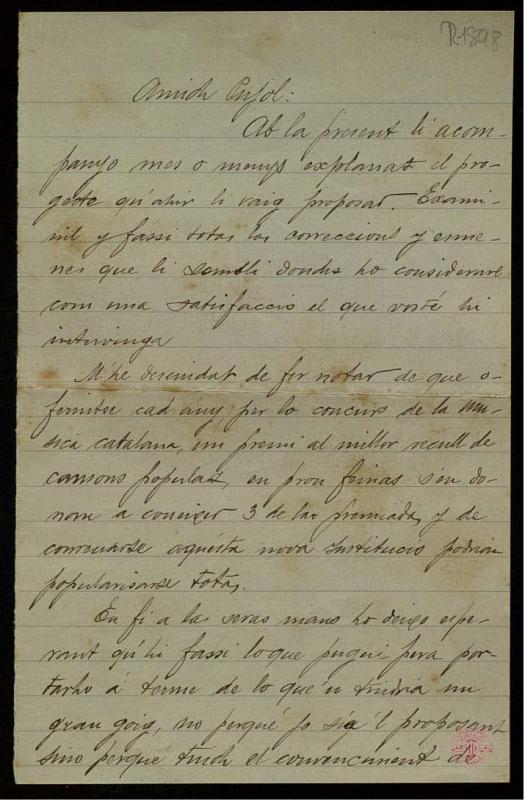 R-1898
Amich Pujol:
Ab la present li acom-
panyo mes o menys explanat el pro-
gecte qu'ahir li vaig proposar. Exami-
nil y fassi totas las correccions y esme-
nes que li sembli donchs ho consideraré
com una satisfacció el que vosté hi
intervinga
M'he descuidat de fer notar de que o-
ferintse cad'any, per lo concurs de la mú-
sica catalana, un premi al millor recull de
cansons populars, en prou feinas s'en do-
nan a coneixer 3 de las premiadas, y de
conrearse aquesta nova institució podrian
popularisarse totas.
En fi a las sevas mans ho deixo espe-
rant qu'hi fassi lo que pugui pera por-
tarho á terme de lo que'n tindria un
gran goig, no perqué jo siga 'l proposant
sino perqué tinch el convenciment de